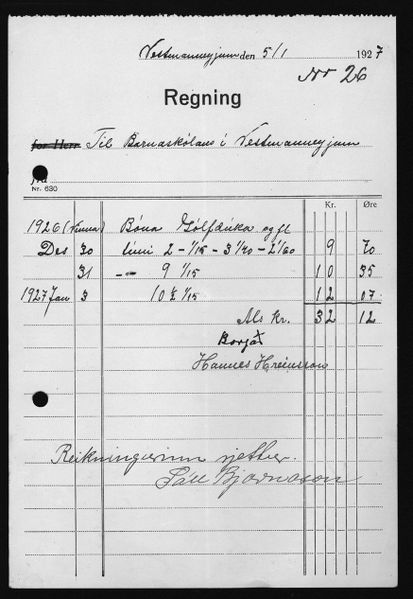 Vestmanneyjum den 5/1 1927
Nr 26
Regning
for Herr Til Barnaskólans í Vestmanneyjum
fra
Nr. 630
Kr. Øre
1926 (Vinna) Bóna Gólfdúka og fl
Des 30 tími 2 - 1/15 - 3 1/40 - 2 1/60 9 70
31 -„- 9 1/15 10 35
1927 Jan 3 10½ 1/15 12 07
Als kr. 32 12
Borgað
Hannes Hreinsson
Reikningurinn
Páll Bjarnason